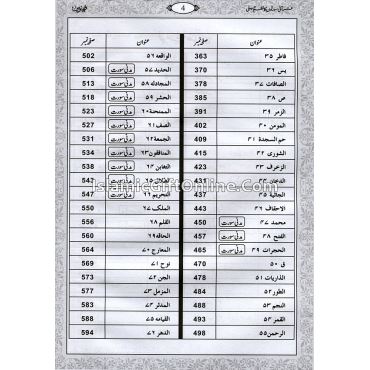 4
عنوان صفحہ نمبر عنوان صفحہ نمبر
فاطر ۳۵ 363 الواقعه ۵۶ 502
یس ۳۶ 370 الحدید ۵۷ مدنی سورت 506
الصافات ۳۷ 378 المجادله ۵۸ مدنی سورت 513
ص ۳۸ 385 الحشر ۵۹ مدنی سورت 518
الزمر ۳۹ 391 الممتحنة ۶۰ مدنی سورت 523
المومن ۴۰ 402 الصف ۶۱ مدنی سورت 527
حم السجدة ۴۱ 409 الجمعة ۶۲ مدنی سورت 531
الشوری ۴۲ 415 المنافقون ۶۳ مدنی سورت 534
الزخرف ۴۳ 423 التغابن ۶۴ مدنی سورت 538
الدخان ۴۴ 431 الطلاق ۶۵ مدنی سورت 542
IslamicGiftOnline.Com
الجاثیة ۴۵ 437 التحریم ۶۶ مدنی سورت 547
الاحقاف ۴۶ 443 الملک ۶۷ 550
محمد ۴۷ مدنی سورت 450 القلم ۶۸ 556
الفتح ۴۸ مدنی سورت 457 الحاقه ۶۹ 560
الحجرات ۴۹ مدنی سورت 465 المعارج ۷۰ 564
ق ۵۰ 470 نوح ۷۱ 569
الذاریات ۵۱ 478 الجن ۷۲ 573
الطور ۵۲ 484 المزمل ۷۳ 577
النجم ۵۳ 488 المدثر ۷۴ 583
القمر ۵۴ 493 القیامه ۷۵ 588
الرحمن ۵۵ 498 الدهر ۷۶ 594